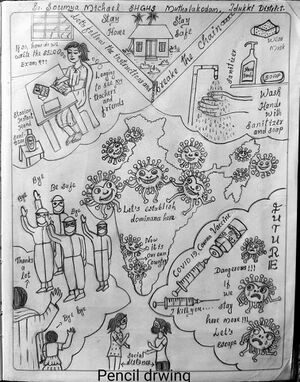 Sr. Soumya Michael SHGHS Muthalakodam, Idukki District.
Let's follow the instructions and
breake the Chain......
Stay
@
Home
Stay
Safe
If so, how do we
write the SSLC
Exam?!!!
I want
to see my
Teachers
and
friends
Wear
Mask
Sanitizer
Soap
Wash
Hands
with
Sanitizer
and soap
Let's establish
dominance here
Now
it is
our
Country
Bye
Bye
Bye
Be Safe
Thanks
a
lot
Bye bye
Social
distance
COVID 19, Corona Vaccine
I kill you.....
FUTURE
Dangerous!!!
If
we
stay
here more!!!
Let's
escape
Pencil drwing